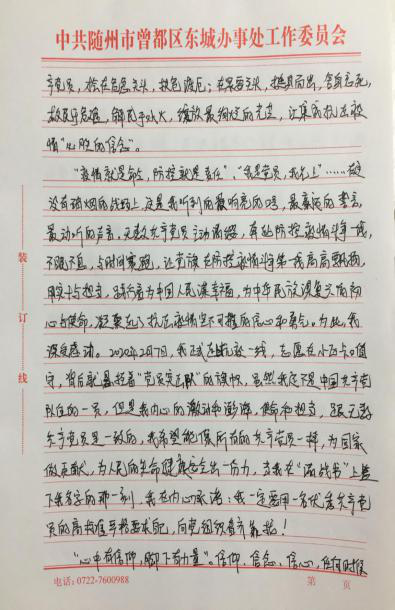 中共随州市曾都区东城办事处工作委员会
产党员，总在危急关头，
救民于危难，解民于水火，绽放最绚烂的光芒，汇集成抗击疫
情"必胜的信念"。
"疫情就是命令，防控就是责任"、"我是党员，我先上"……在这
没有硝烟的战场上，这是我听到的最响亮的口号，最豪迈的誓言，
最动听的声音，无数共产党员主动请缨，奔赴防控疫情斗争一线，
不眠不息，与时间赛跑，让党旗在防控疫情斗争第一线高高飘扬，
用实干与担当，践行着为中国人民谋幸福，为中华民族谋复兴的初
心与使命，凝聚无比抗击疫情坚不可摧的信心和勇气。为此，我
深受感动。2020年2月7日，我正式走上抗疫一线，志愿在小区卡口值
守，背后就悬挂着"党员突击队"的旗帜，虽然我还不是中国共产党
队伍的一员，但是我内心的激动和澎湃，使命和担当，跟无数
共产党员是一致的，我希望能像所有的共产党员一样，为国家
做贡献，为人民的生命健康安全出一份力，当我在"请战书"上签
下我名字的那一刻，我在内心承诺：我一定要用一名优秀共产党
员的高标准严格要求自己，向党组织看齐靠拢！
"心中有信仰，脚下有力量"。信仰、信念、信心，任何时候
电话：0722-7600988
第 页
装
订
线